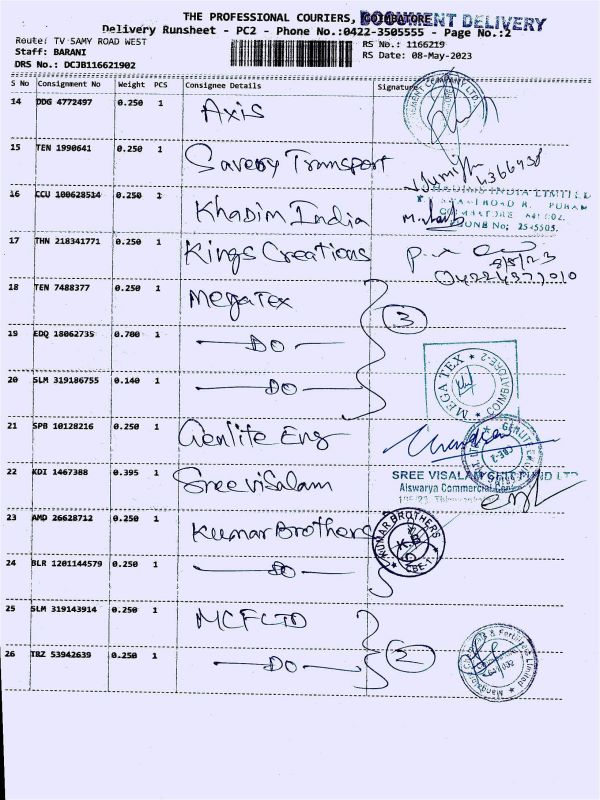 THE PROFESSIONAL COURIERS, COIMBATORE
DOCUMENT DELIVERY
Delivery Runsheet - PC2 - Phone No.:0422-3505555 - Page No.:2
Route: TV SAMY ROAD WEST
RS No.: 1166219
Staff: BARANI
RS Date: 08-May-2023
DRS No.: DCJB116621902
S No Consignment No Weight PCS Consignee Details Signature
14 DDG 4772497 0.250 1 Axis
15 TEN 1990641 0.250 1 Savery Transport
16 CCU 100628514 0.250 1 Khadim India
KHADIMS INDIA LIMITED
PHONE No: 2545505.
17 THN 218341771 0.250 1 Kings Creations
8/5/23
18 TEN 7488377 0.250 1 MegaTex
3
19 EDQ 18062735 0.700 1 DO
20 SLM 319186755 0.140 1 DO
MEGA TEX COIMBATORE-2
21 SPB 10128216 0.250 1 Genlite Eng
22 KDI 1467388 0.395 1 Sree Visalam
SREE VISALAM CHIT FUND LTD
Aiswarya Commercial
23 AMD 26628712 0.250 1 Kumar Brothers
KUMAR BROTHERS K.B CBE-1
24 BLR 1201144579 0.250 1 DO
25 SLM 319143914 0.250 1 MCFLTD
26 TRZ 53942639 0.250 1 DO
2